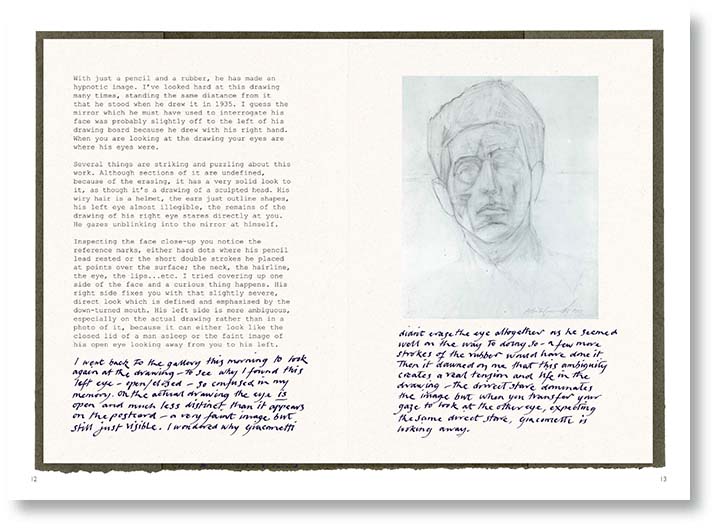 With just a pencil and a rubber, he has made an
hypnotic image. I've looked hard at this drawing
many times, standing the same distance from it
that he stood when he drew it in 1935. I guess the
mirror which he must have used to interrogate his
face was probably slightly off to the left of his
drawing board because he drew with his right hand.
When you are looking at the drawing your eyes are
where his eyes were.
Several things are striking and puzzling about this
work. Although sections of it are undefined,
because of the erasing, it has a very solid look to
it, as though it's a drawing of a sculpted head. His
wiry hair is a helmet, the ears just outline shapes,
his left eye almost illegible, the remains of the
drawing of his right eye stares directly at you.
He gazes unblinking into the mirror at himself.
Inspecting the face close-up you notice the
reference marks, either hard dots where his pencil
lead rested or the short double strokes he placed
at points over the surface; the neck, the hairline,
the eye, the lips...etc. I tried covering up one
side of the face and a curious thing happens. His
right side fixes you with that slightly severe,
direct look which is defined and emphasised by the
down-turned mouth. His left side is more ambiguous,
especially on the actual drawing rather than in a
photo of it, because it can either look like the
closed lid of a man asleep or the faint image of
his open eye looking away from you to his left.
I went back to the gallery this morning to look
again at the drawing - to see why I found this
left eye - open/closed - so confused in my
memory. On the actual drawing the eye is
open and much less distinct than it appears
on the postcard - a very faint image but
still just visible. I wondered why Giacometti
didn't erase the eye altogether as he seemed
well on the way to doing so - a few more
strokes of the rubber would have done it.
Then it dawned on me that this ambiguity
creates a real tension and life in the
drawing - the direct stare dominates
the image but when you transfer your
gaze to look at the other eye, expecting
the same direct stare, Giacometti is
looking away.
12
13